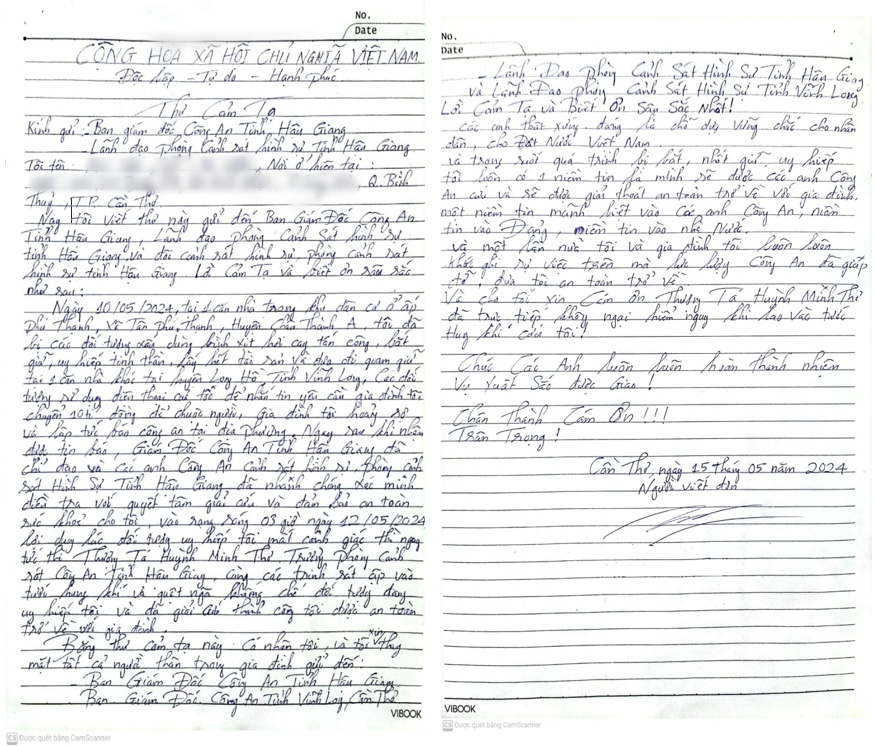 No.
Date
CỘNG HOÀ XÃ HỘI CHỦ NGHĨA VIỆT NAM
Độc lập - Tự do - Hạnh phúc
Thư Cảm Tạ
Kính gửi: - Ban giám đốc Công An Tỉnh Hậu Giang
- Lãnh đạo phòng Cảnh sát hình sự Tỉnh Hậu Giang
Tôi tên : , Nơi ở hiện tại :
, Q. Bình
Thuỷ, TP. Cần Thơ
Nay tôi viết thư này gửi đến Ban Giám Đốc Công An
Tỉnh Hậu Giang, Lãnh đạo phòng Cảnh Sát hình sự
tỉnh Hậu Giang và đội cảnh sát hình sự, phòng cảnh sát
hình sự tỉnh Hậu Giang Lời Cảm Tạ và biết ơn sâu sắc
như sau:
Ngày 10/05/2024, tại 1 căn nhà trong khu dân cư ở ấp
Phú Thạnh, Xã Tân Phú Thạnh, Huyện Châu Thành A, tôi đã
bị các đối tượng xấu dùng bình xịt hơi cay tấn công, bắt
giữ, uy hiếp tinh thần, lấy hết tài sản và đưa đi quản giữ
tại 1 căn nhà khác tại huyện Long Hồ, Tỉnh Vĩnh Long, Các đối
tượng sử dụng điện thoại của tôi để nhắn tin yêu cầu gia đình tôi
chuyển 10 tỷ đồng để chuộc người, Gia đình tôi hoảng sợ
và lập tức báo công an tại địa phương, Ngay sau khi nhận
được tin báo, Giám Đốc Công An Tỉnh Hậu Giang đã
chỉ đạo và các anh Công An cảnh sát hình sự, Phòng cảnh
sát Hình Sự Tỉnh Hậu Giang đã nhanh chóng xác minh
điều tra với quyết tâm giải cứu và đảm bảo an toàn
sức khoẻ cho tôi, vào rạng sáng 03 giờ ngày 12/05/2024
lợi dụng lúc đối tượng uy hiếp tôi mất cảnh giác thì ngay
tức thì Thượng Tá Huỳnh Minh Thơ, Trưởng Phòng Cảnh
sát Công An Tỉnh Hậu Giang, cùng các trinh sát ập vào
tước hung khí và quật ngã khống chế đối tượng đang
uy hiếp tôi và đã giải cứu thành công tôi được an toàn
trở về với gia đình
Bằng thư cảm tạ này Cá nhân tôi, và tôi xin thay
mặt tất cả người thân trong gia đình gửi đến:
- Ban Giám Đốc Công An Tỉnh Hậu Giang
Ban Giám Đốc Công An Tỉnh Vĩnh Long, Cần Thơ
VIBOOK
CS Được quét bằng CamScanner
No.
Date
- Lãnh Đạo phòng Cảnh Sát Hình Sự Tỉnh Hậu Giang
và Lãnh Đạo phòng Cảnh Sát Hình Sự Tỉnh Vĩnh Long
Lời Cảm Tạ và Biết Ơn Sâu Sắc Nhất!
Các anh thật xứng đáng là chỗ dựa vững chắc cho nhân
dân, cho Đất Nước Việt Nam.
và trong suốt quá trình bị bắt, nhốt giữ, uy hiếp
tôi luôn có 1 niềm tin là mình sẽ được các anh Công
An cứu và sẽ được giải thoát an toàn trở về với gia đình.
một niềm tin mãnh liệt vào Các anh Công An, niềm
tin vào Đảng, niềm tin vào nhà Nước.
Và một lần nữa tôi và gia đình tôi luôn luôn
khắc ghi sự việc trên mà lực lượng Công An đã giúp
đỡ, đưa tôi an toàn trở về
Và cho tôi xin Cám ơn Thượng Tá Huỳnh Minh Thơ
đã trực tiếp không ngại hiểm nguy khi lao vào tước
Hung khí cứu tôi!
Chúc Các Anh luôn luôn hoàn thành nhiệm
Vụ xuất Sắc được Giao!
Chân Thành Cám Ơn!!!
Trân Trọng!
Cần Thơ, ngày 15 tháng 05 năm 2024
Người viết đơn
VIBOOK
CS Được quét bằng CamScanner